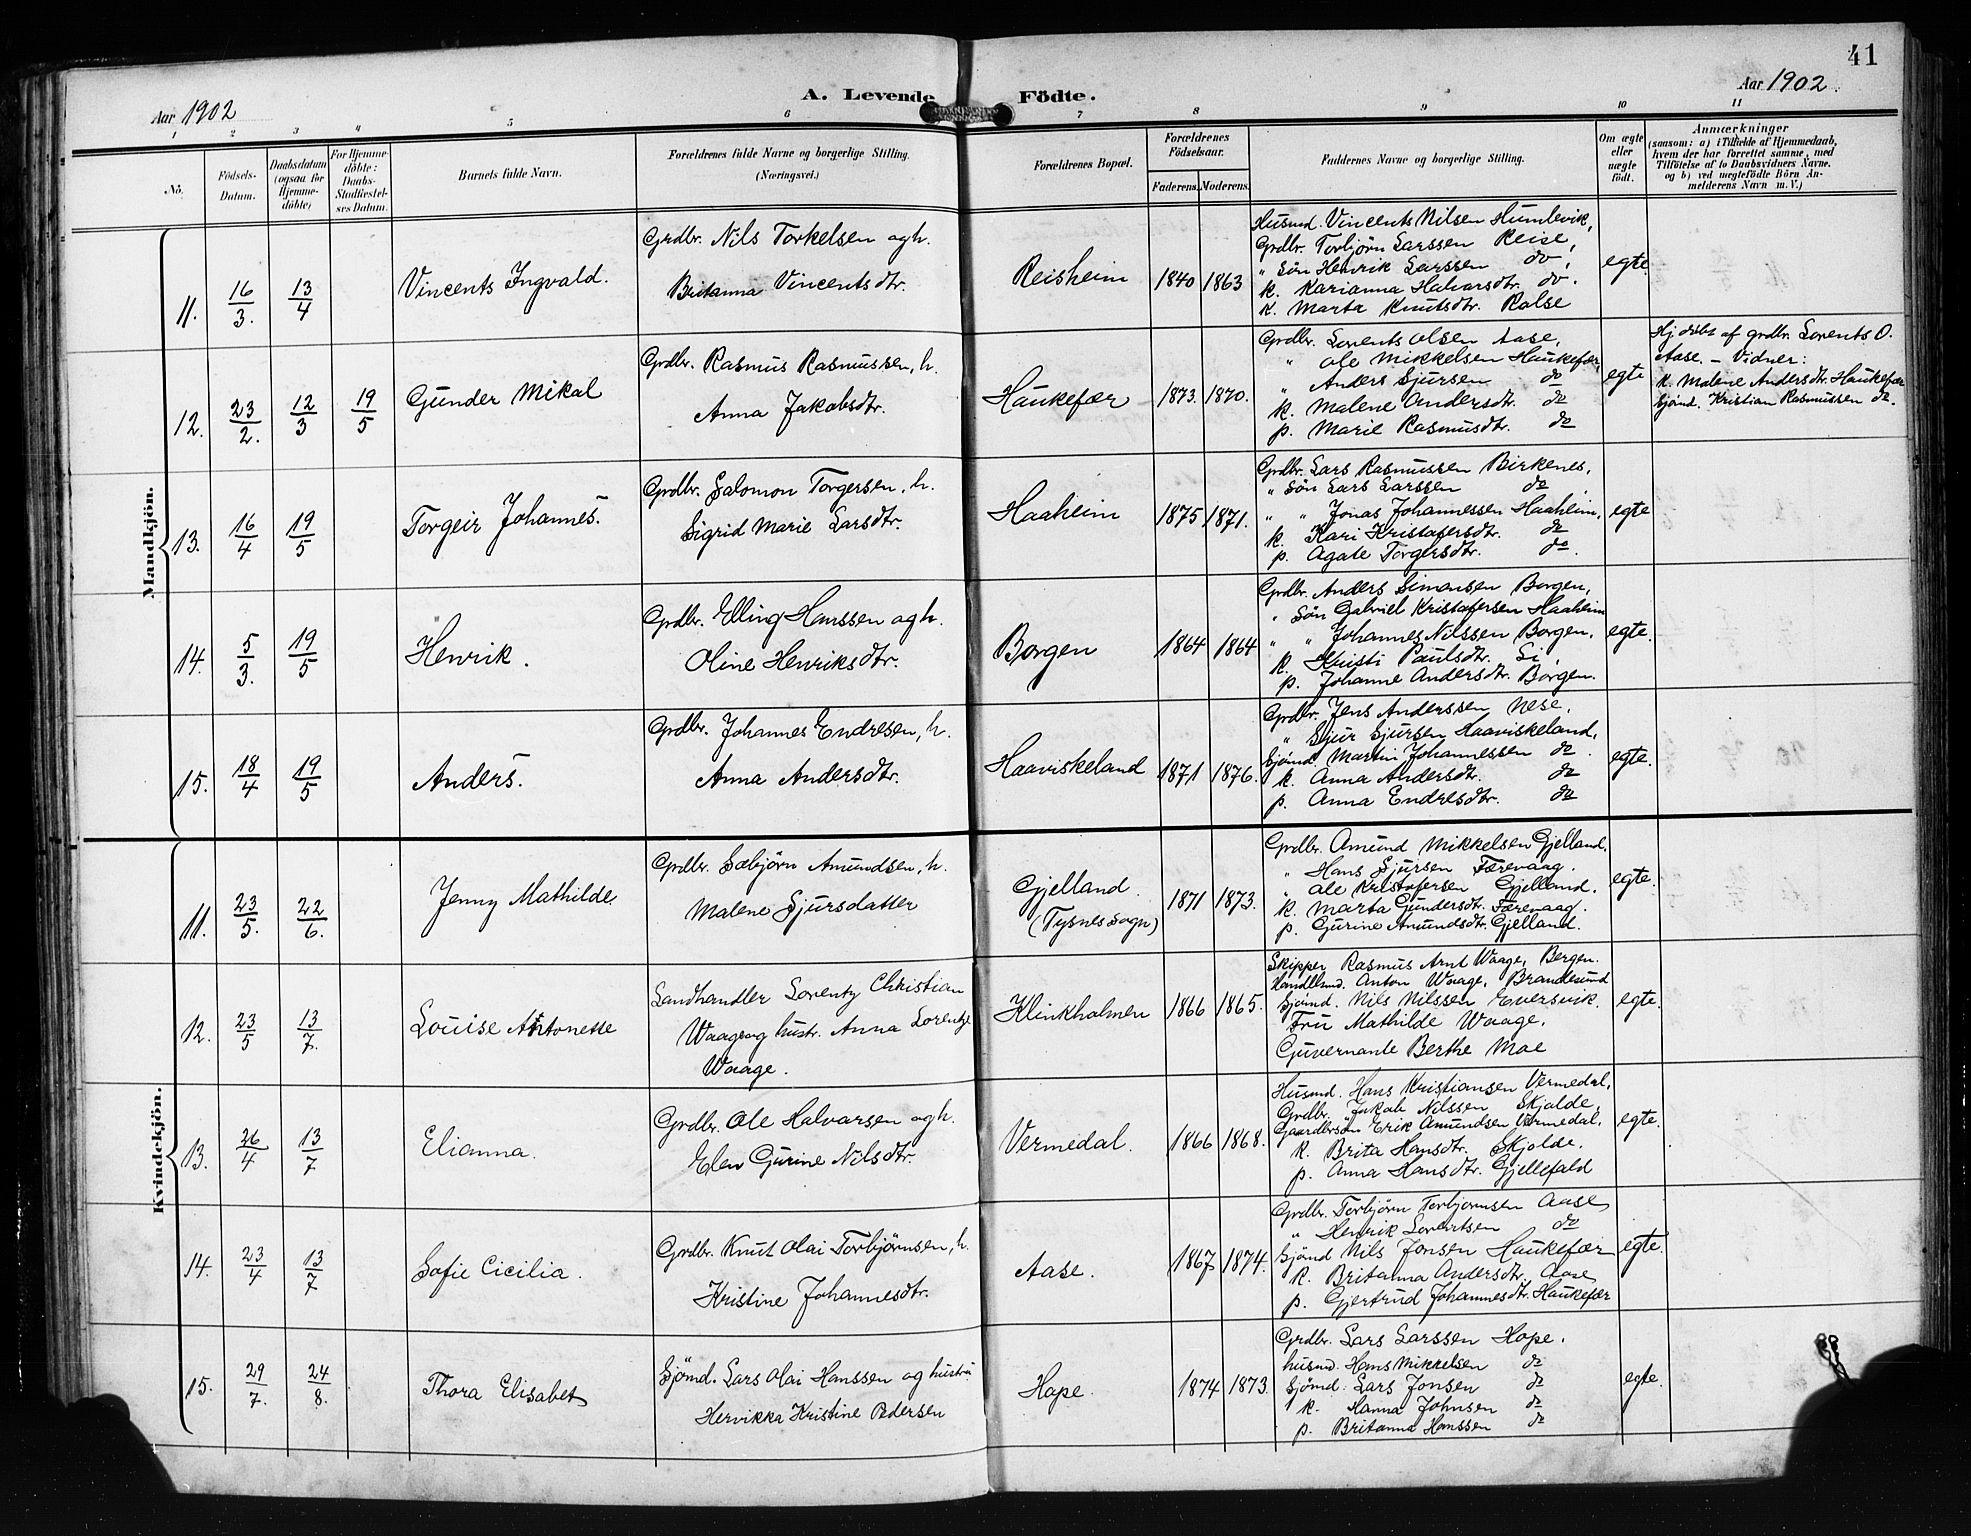 41
Aar 1902
A. Levende Födte.
Aar 1902
1 2 3 4 5 6 7 8 9 10 11
No.
Födsels-Datum.
Daabsdatum (ogsaa for Hjemme-döbte)
For Hjemme-döbte: Daabs-Stadfæstel-ses Datum.
Barnets fulde Navn.
Forældrenes fulde Navne og borgerlige Stilling.
(Næringsvei.)
Forældrenes Bopæl.
Forældrenes Födselsaar.
Faderens. Moderens.
Faddernes Navne og borgerlige Stilling.
Om ægte eller uægte födt.
Anmærkninger
(saasom: a) i Tilfælde af Hjemmedaab,
hvem der har forrettet samme, med
Tilföielse af to Daabsvidners Navne,
og b) ved uægtefödte Börn An-
melderens Navn m. V.)
Mandkjön.
11. 16/3. 13/4 Vincents Ingvald.
Grdbr. Nils Torkelsen og h.
Britanna Vincentsdtr.
Reisheim 1840 1863
Husmd. Vincents Nilsen Humlevik,
Grdbr. Torbjörn Larssen Reise,
" Sön Henrik Larssen do,
k. Karianna Halvorsdtr. do.
k. Marta Knutsdtr. Ralse
egte
12. 23/2. 12/3 19/5 Gunder Mikal
Grdbr. Rasmus Rasmussen, h.
Anna Jakobsdtr.
Haukefær 1873. 1870.
Grdbr. Lorents Olsen Aase,
" Ole Mikkelsen Haukefær,
" Anders Sjursen do
k. Malene Andersdtr. do
p. Marie Rasmusdtr. do
egte
Hj. döbt af grdbr. Lorents O.
Aase. – Vidner:
k. Malene Andersdtr. Haukefær
Sjömd. Kristian Rasmussen do.
13. 16/4 19/5 Torgeir Johannes.
Grdbr. Salomon Torgersen, h.
Sigrid Marie Larsdtr.
Haaheim 1875 1871.
Grdbr. Lars Rasmussen Birkenes,
" Sön Lars Larssen do
" " Jonas Johannessen Haaheim,
k. Kari Kristafersdtr. do
p. Agate Torgersdtr. do.
egte
14. 5/3. 19/5 Henrik.
Grdbr. Elling Hanssen og h.
Oline Henriksdtr.
Borgen 1864 1864
Grdbr. Anders Simonsen Borgen,
" Sön Gabriel Kristafersen Haaheim
" " Johannes Nilssen Borgen,
k. Kristi Paulsdtr. Li,
p. Johanne Andersdtr. Borgen.
egte.
15. 18/4 19/5 Anders.
Grdbr. Johannes Endresen, h.
Anna Andersdtr.
Haaviskeland 1871 1876.
Grdbr. Jens Anderssen Nese,
" Sjur Sjursen Haaviskeland,
Sjömd. Martin Johannessen do.
k. Anna Andersdtr. do
p. Anna Endresdtr. do
egte.
Kvindekjön.
11. 23/5. 22/6. Jenny Mathilde
Grdbr. Sæbjörn Amundsen, h.
Malene Sjursdatter
Gjelland.
(Tysnes sogn)
1871 1873.
Grdbr. Amund Mikkelsen Gjelland.
" Hans Sjursen Færevaag.
" Ole Kristofersen Gjelland.
k. Marta Gundersdtr. Færevaag.
p. Gurine Amundsdtr. Gjelland.
egte.
12. 23/5 13/7. Louise Antonette
Landhandler Lorentz Christian
Waage og hustr. Anna Lorentze
Waage.
Klinkholmen 1866 1865.
Skipper Rasmus Arnt Waage, Bergen.
Handlsmd. Anton Waage, Brandesund
Sjömd. Nils Nilssen Eversvik.
Fru Mathilde Waage.
Guvernante Berthe Moe
egte.
13. 26/4 13/7 Elianna.
Grdbr. Ole Halvarsen og h.
Elen Gurine Nilsdtr.
Vermedal. 1866 1868.
Husmd. Hans Kristiansen Vermedal,
Grdbr. Jakob Nilssen Skjolde,
Gaardbrsön Erik Amundsen Vermedal,
k. Brita Hansdtr. Skjolde.
p. Anna Hansdtr. Gjellefald
egte.
14. 23/4 13/7 Sofie Cicilia.
Grdbr. Knut Olai Torbjörnsen, h.
Kristine Johannesdtr.
Aase. 1867 1874.
Grdbr. Torbjörn Torbjörnsen Aase,
" Henrik Lorentsen do
Sjömd Nils Jonsen Haukefær
k. Britanna Andersdtr. Aase
p. Gjertrud Johannesdtr. Haukefær
egte.
15. 29/7. 24/8. Thora Elisabet
Sjömd. Lars Olai Hanssen og hustru
Hervikka Kristine Pedersen
Hope. 1874 1873.
Grdbr. Lars Larssen Hope.
husmd. Hans Mikkelsen do
Sjömd. Lars Jonsen do
k. Hanna Johnsen do
p. Britanna Hanssen do
egte.